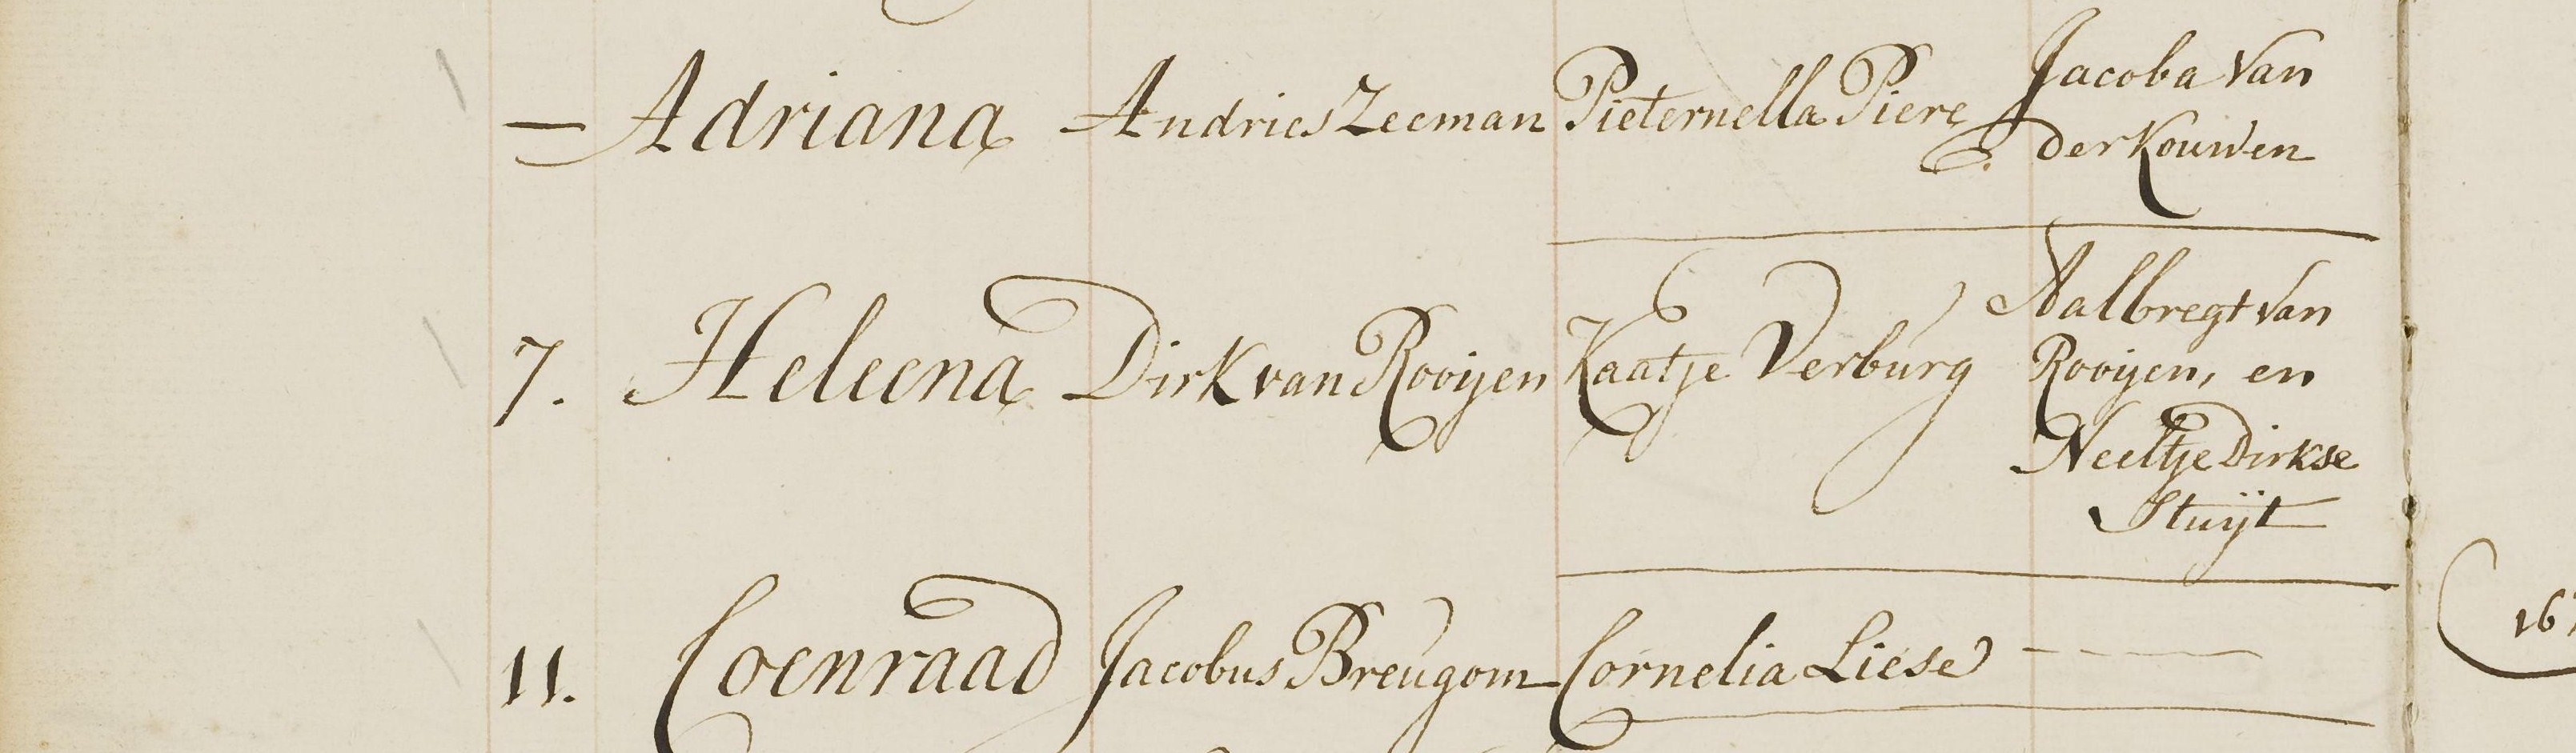 — Adriana Andries Zeeman Pieternella Piere Jacoba Van
der Kouwen
7. Heleena Dirk van Rooijen Kaatje Verburg Aalbregt van
Rooijen, en
Neeltje Dirkse
Stuijt
11. Coenraad Jacobus Breugom Cornelia Liese - - —